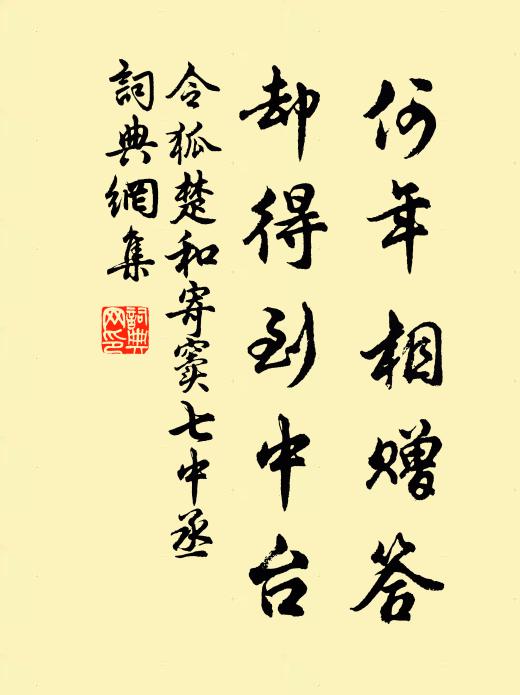 何年相赠答
却得到中台
令狐楚和寄窦七中丞
词典網集
詞典网印